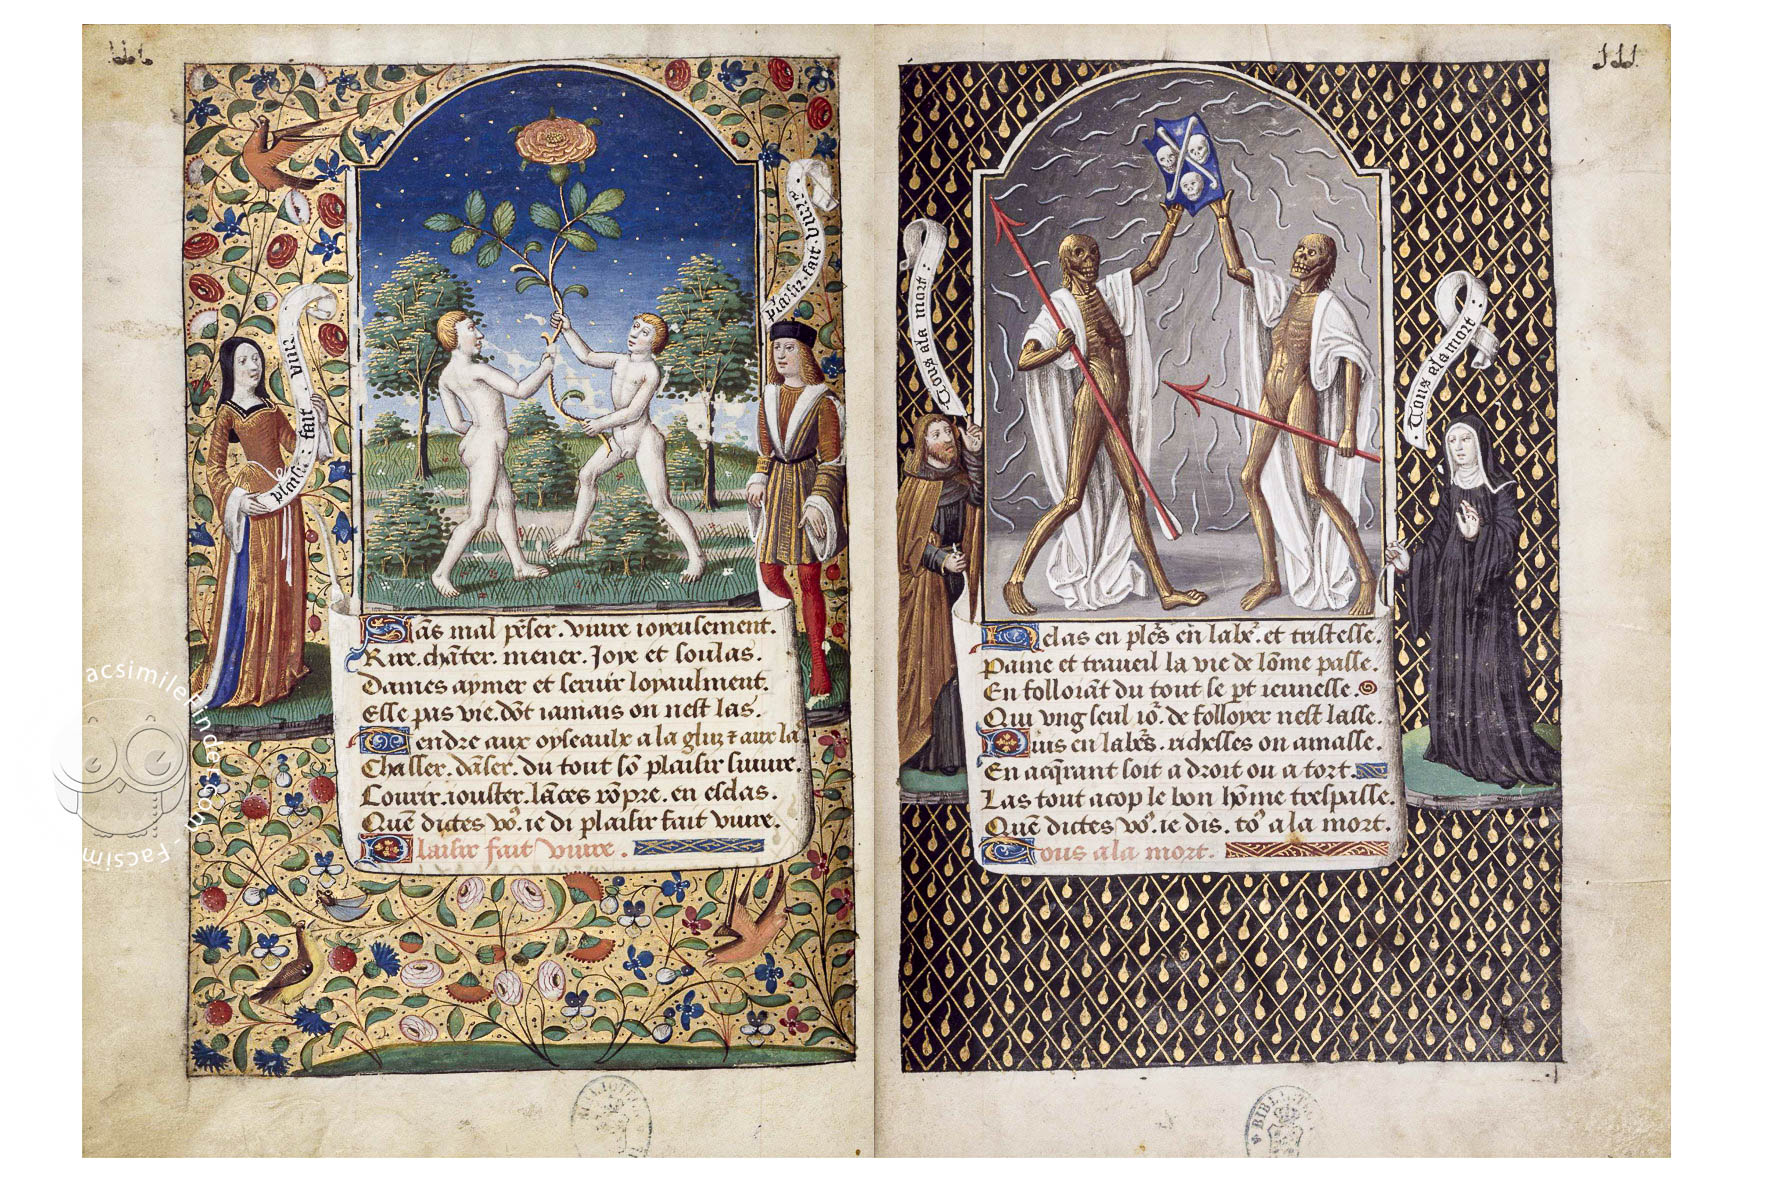 .ii.
plaisir : fait vivre
plaisir . fait . vivre
Sãs mal pẽser . vivre ioyeusement .
Rire . chãter . mener . Joye et soulas .
Dames aymer et servir loyaulment .
Esse pas vie . dõt iamais on nest las .
Tendre aux oyseaulx a la gluz ⁊ aux la
Chasser . dãser . du tout sõ plaisir suivre .
Courir . iouster . lãces rõpre . en esclas .
Quẽ dictes voꝰ . ie di plaisir fait vivre .
Plaisir fait vivre .
BIBLIOTE
.iii.
Tous a la mort :
Tous a la mort .
Helas en plẽs en labr̃ . et tristesse .
Paine et traveil la vie de lõme passe .
En folloiãt du tout se pt ieunesse .
Qui ung seul ior̃ . de folloyer nest lasse .
Puis en labr̃s . richesses on amasse .
En acq̃rant soit a droit ou a tort .
Las tout acop le bon hõme trespasse .
Quẽ dictes voꝰ . ie dis . toꝰ a la mort .
Tous a la mort .
BIBLIOTE
Facsimilefinder.com - Facsim